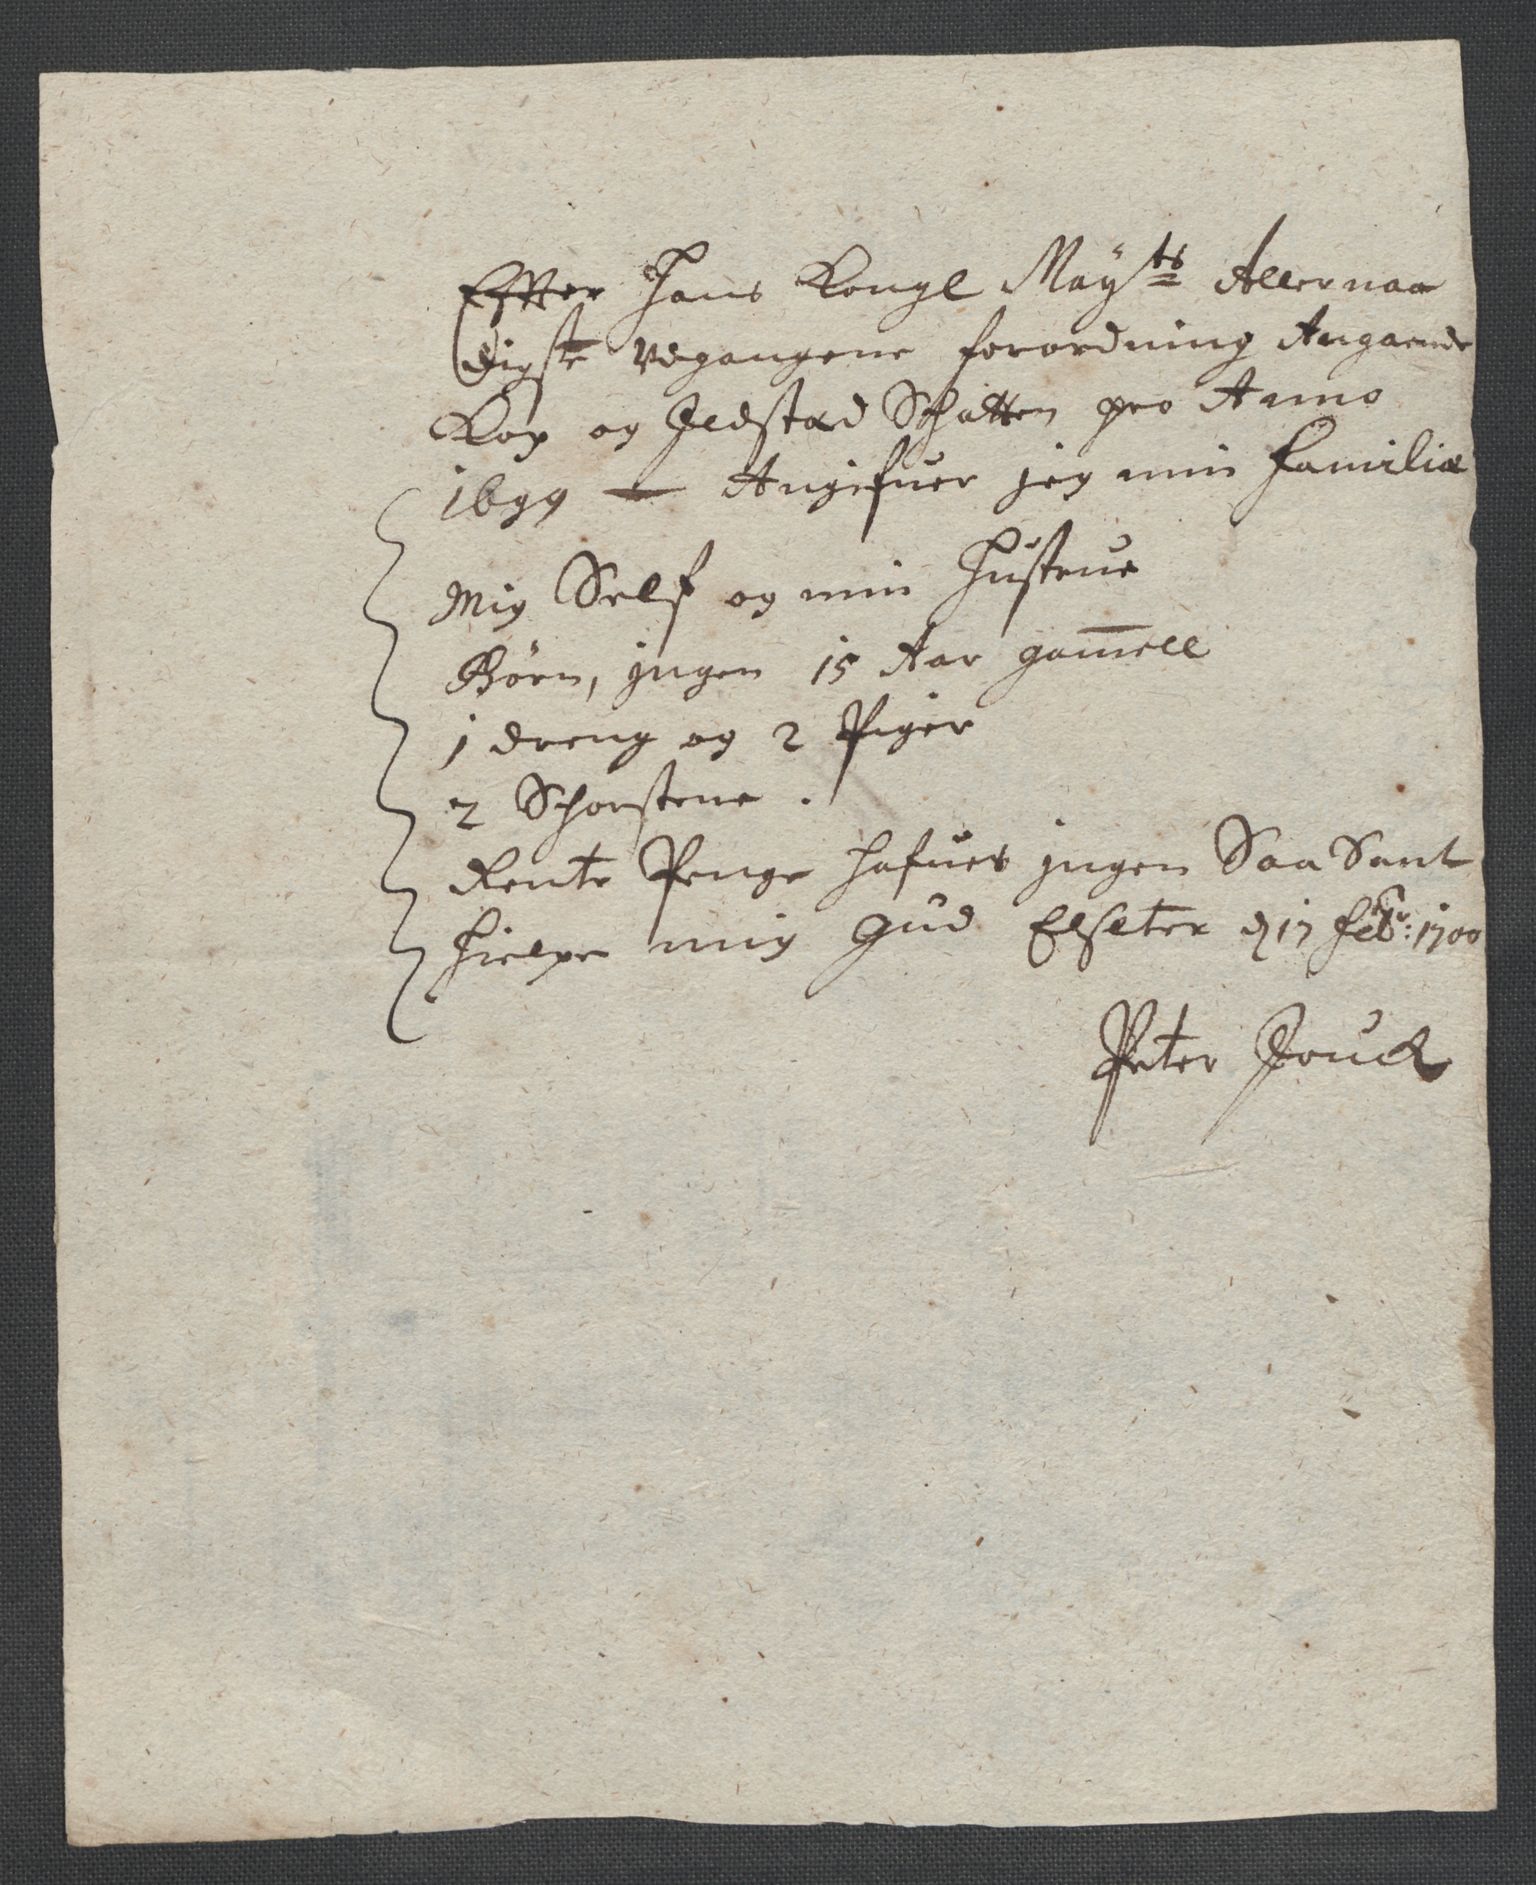 Effter Hans Kongl May^ts Allernaa
digste Vdgangene forordning Angaaende
Kop og Jldstæd Schatten pro Anno
1699 — Angifuer jeg min familiæ
Mig Self og min Hustrue
Börn, jngen 15 Aar gam̅ell
1 dreng og 2 Piger
2 Schorstene .
Rente Penge hafues jngen Saa Sant
hielpe mig Gud Elseter d 17 feb^r: 1700
Peter